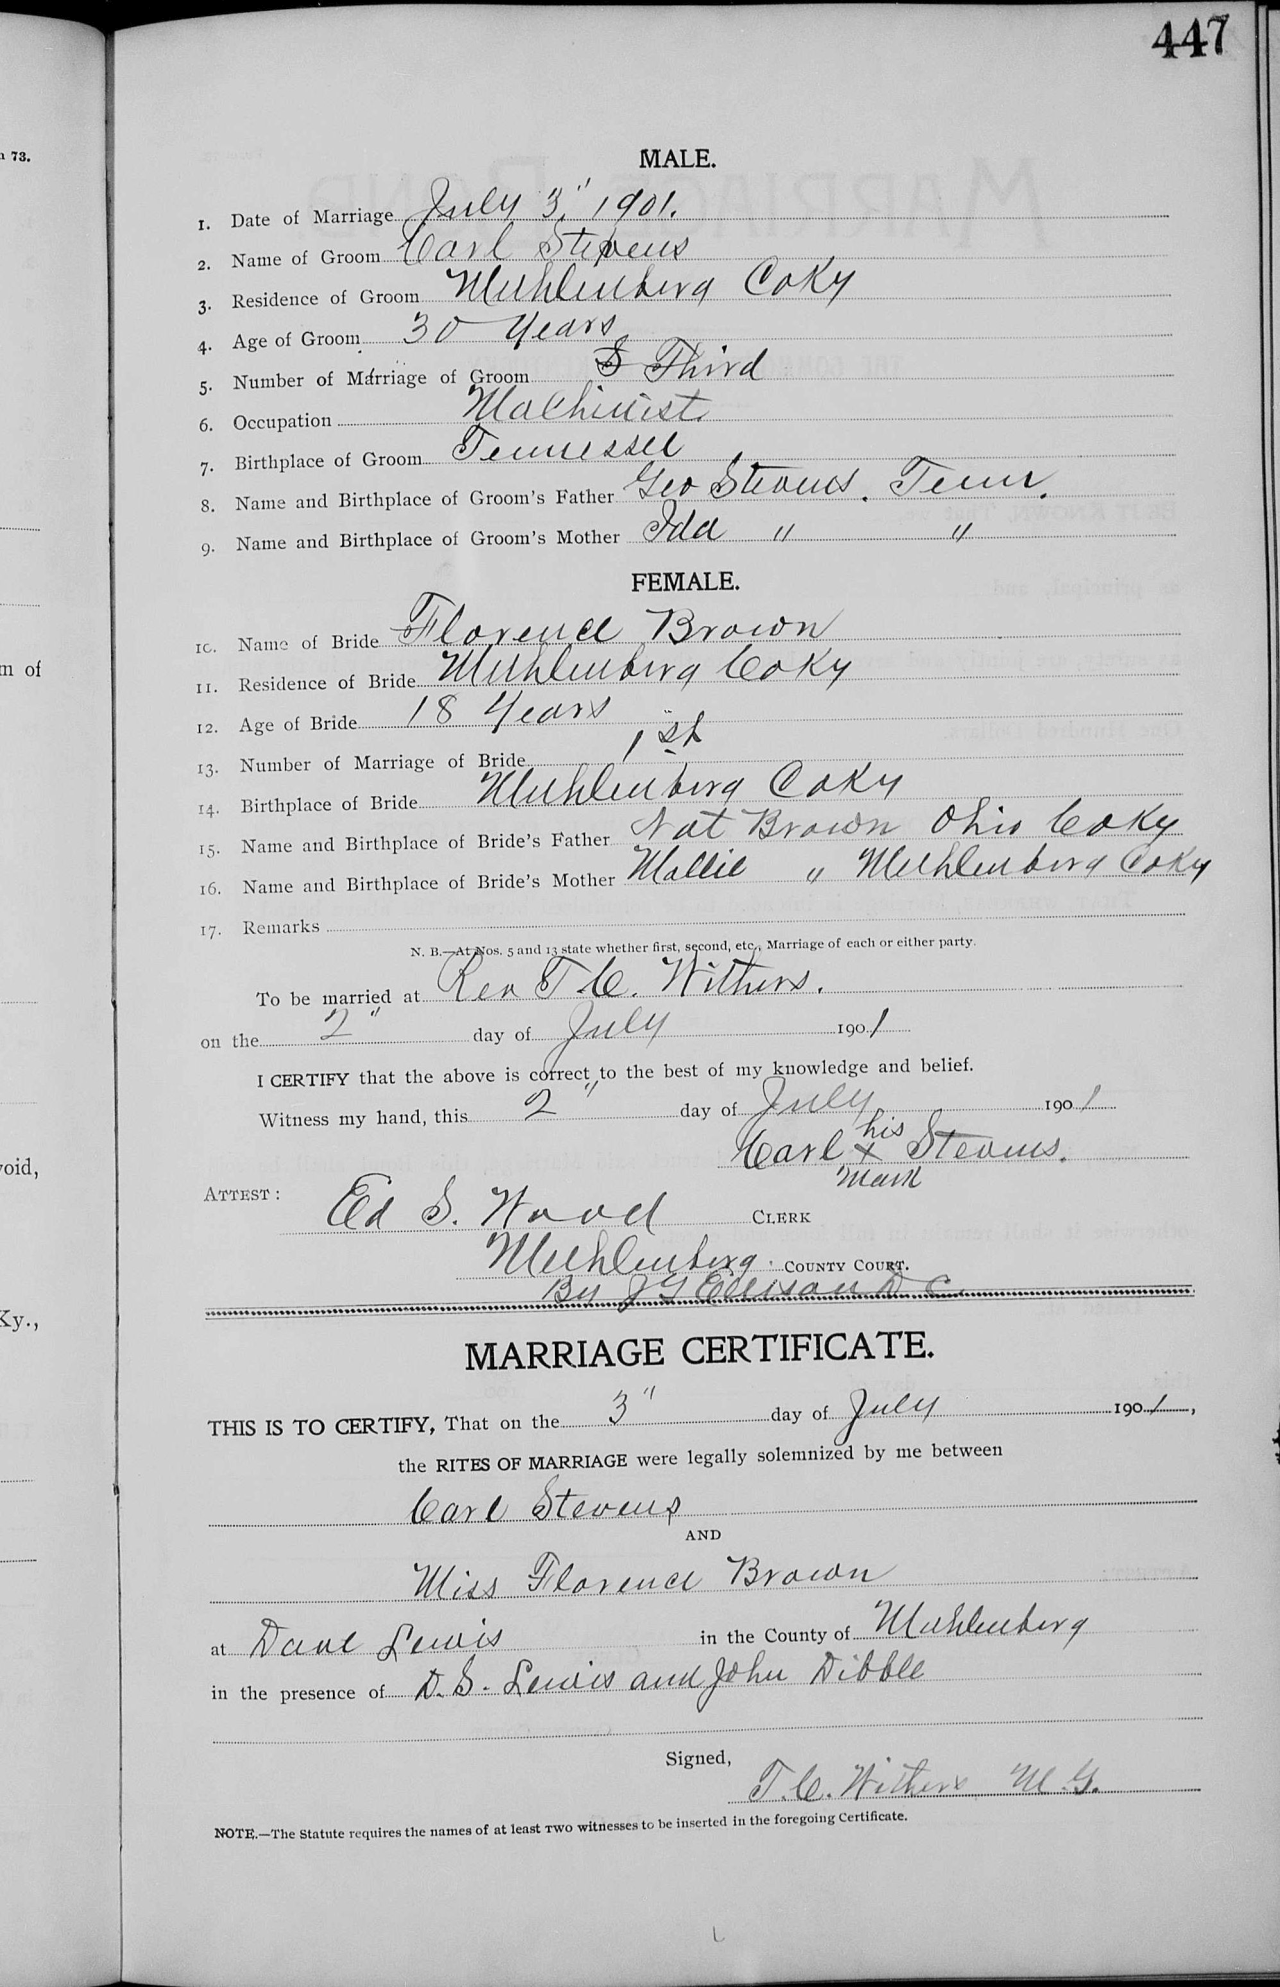 447
73.
MALE.
1. Date of Marriage July 3" 1901.
2. Name of Groom Carl Stevens
3. Residence of Groom Muhlenberg CoKy
4. Age of Groom 30 Years
5. Number of Marriage of Groom Third
6. Occupation Machinist
7. Birthplace of Groom Tennessee
8. Name and Birthplace of Groom's Father Geo Stevens. Tenn.
9. Name and Birthplace of Groom's Mother Ida " "
FEMALE.
10. Name of Bride Florence Brown
m of
11. Residence of Bride Muhlenberg CoKy
12. Age of Bride 18 Years
13. Number of Marriage of Bride 1st
14. Birthplace of Bride Muhlenberg CoKy
15. Name and Birthplace of Bride's Father Nat Brown Ohio CoKy
16. Name and Birthplace of Bride's Mother Mollie " Muhlenberg CoKy
17. Remarks
N. B.—At Nos. 5 and 13 state whether first, second, etc., Marriage of each or either party.
To be married at Rev T. C. Withers.
on the 2" day of July 1901
I CERTIFY that the above is correct to the best of my knowledge and belief.
Witness my hand, this 2" day of July 1901
his
Carl x Stevens.
mark
void,
ATTEST:
Ed S. Wood CLERK
Muhlenberg COUNTY COURT.
By J G Ellison D C
Ky.,
MARRIAGE CERTIFICATE.
THIS IS TO CERTIFY, That on the 3" day of July 1901,
the RITES OF MARRIAGE were legally solemnized by me between
Carl Stevens
AND
Miss Florence Brown
at Dave Lewis in the County of Muhlenberg
in the presence of D. S. Lewis and John Dibble
Signed,
T. C. Withers M. G.
NOTE.—The Statute requires the names of at least TWO witnesses to be inserted in the foregoing Certificate.